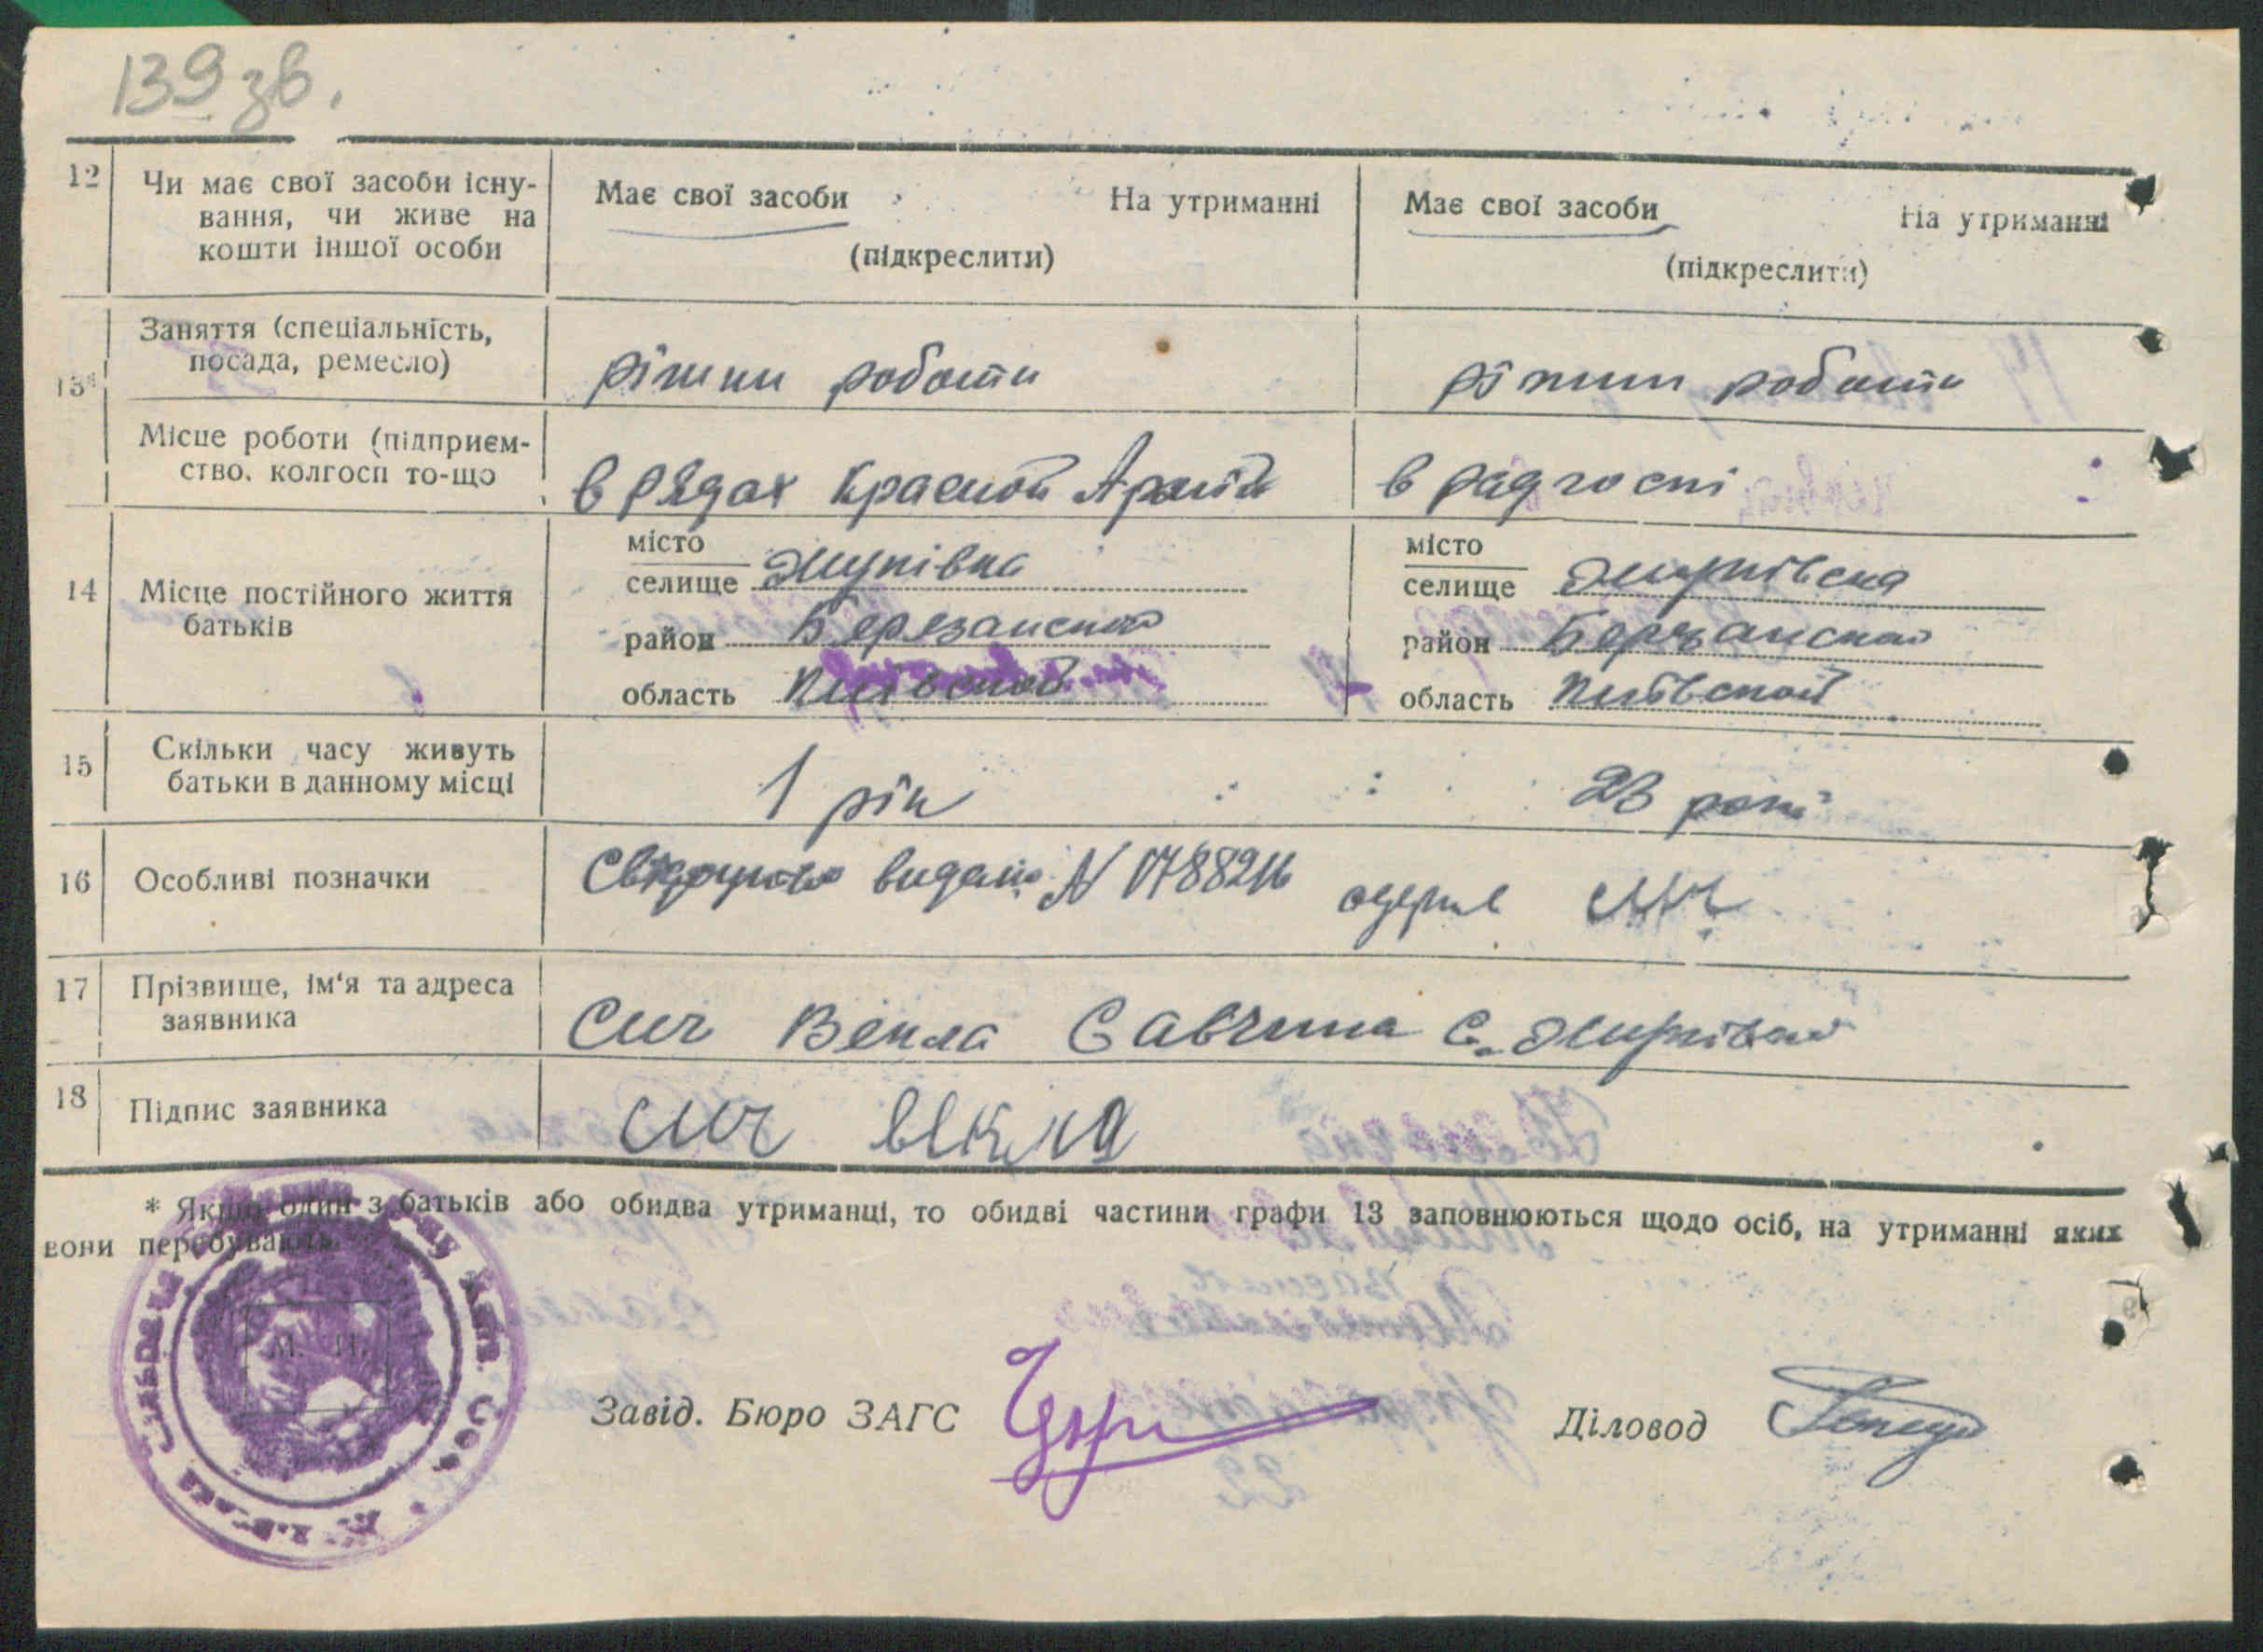 139 зв.
12 Чи має свої засоби існу-
вання, чи живе на
кошти іншої особи
Має свої засоби На утриманні
(підкреслити)
Має свої засоби На утриманні
(підкреслити)
13*
Заняття (спеціальність,
посада, ремесло)
ріжни роботи
ріжни роботи
Місце роботи (підприєм-
ство, колгосп то-що
в рядах Красной Армій
в радгоспі
14 Місце постійного життя
батьків
місто
селище Жуківка
район Березанской
область Київской
місто
селище
район Березанской
область Київской
15 Скільки часу живуть
батьки в данному місці
1 рік
23 роки
16 Особливі позначки
видано N
Сич
17 Прізвище, ім'я та адреса
заявника
Сич Векла Савчина с.
18 Підпис заявника
Сич Векла
* Якщо один з батьків або обидва утриманці, то обидві частини графи 13 заповнюються щодо осіб, на утриманні яких
вони перебувають.
М. П.
Завід. Бюро ЗАГС
Діловод